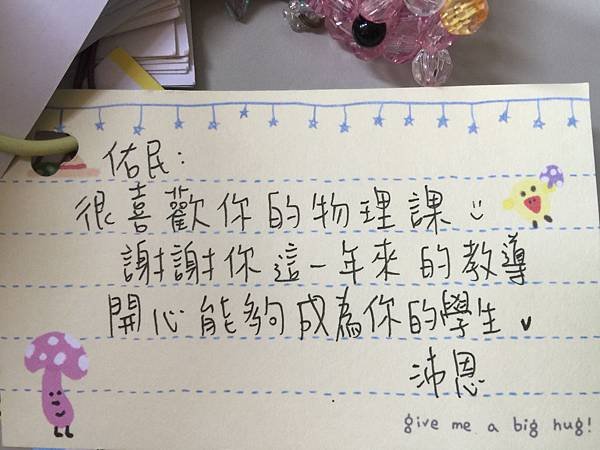 佑民:
很喜歡你的物理課
謝謝你這一年來的教導
開心能夠成為你的學生
沛恩
give me a big hug!